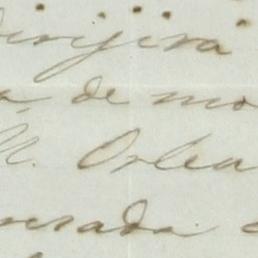 dirijira
a, de mo
N. Orlea
rada